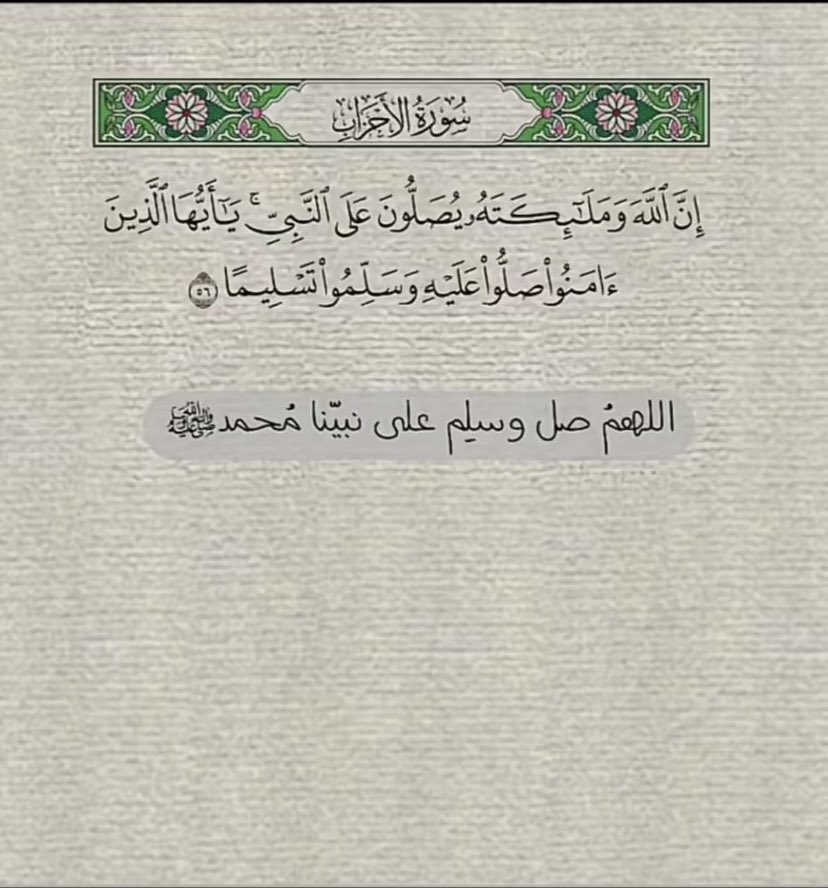 سُورَةُ الأَحْزَابِ
إِنَّ ٱللَّهَ وَمَلَٰٓئِكَتَهُۥ يُصَلُّونَ عَلَى ٱلنَّبِيِّ ۚ يَٰٓأَيُّهَا ٱلَّذِينَ
ءَامَنُوا۟ صَلُّوا۟ عَلَيْهِ وَسَلِّمُوا۟ تَسْلِيمًا ٥٦
اللهمُ صل وسلِم على نبيّنا مُحمد ﷺ